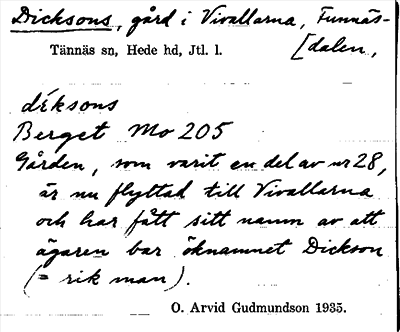 Dicksons, gård i Vivallarna, Funnäs-
[dalen,
Tännäs sn, Hede hd, Jtl. l.
déksons
Berget Mo 205
Gården, som varit en del av nr 28,
är nu flyttad till Vivallarna
och har fått sitt namn av att
ägaren bar öknamnet Dickson
(= rik man).
O. Arvid Gudmundson 1935.